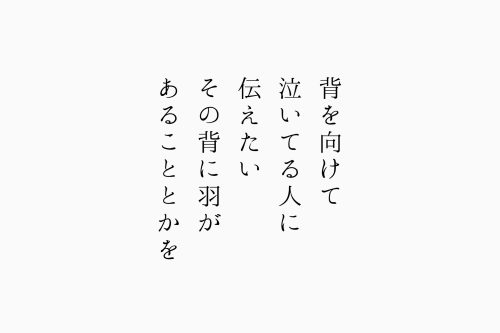 背を向けて
泣いてる人に
伝えたい
その背に羽が
あることとかを